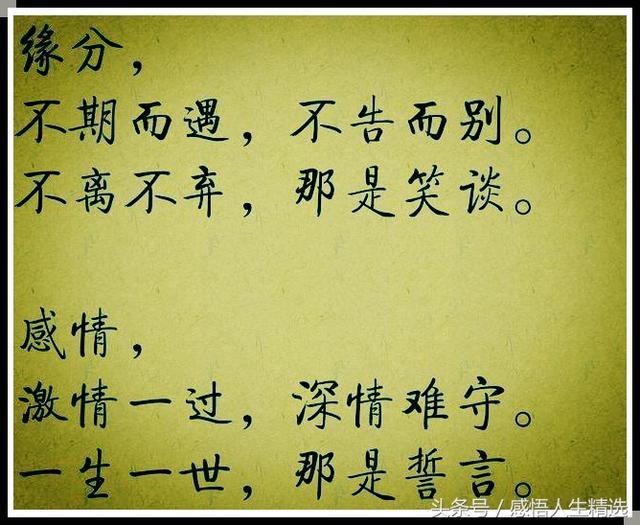 缘分，
不期而遇，不告而别。
不离不弃，那是笑谈。
感情，
激情一过，深情难守。
一生一世，那是誓言。
头条号/感悟人生精选